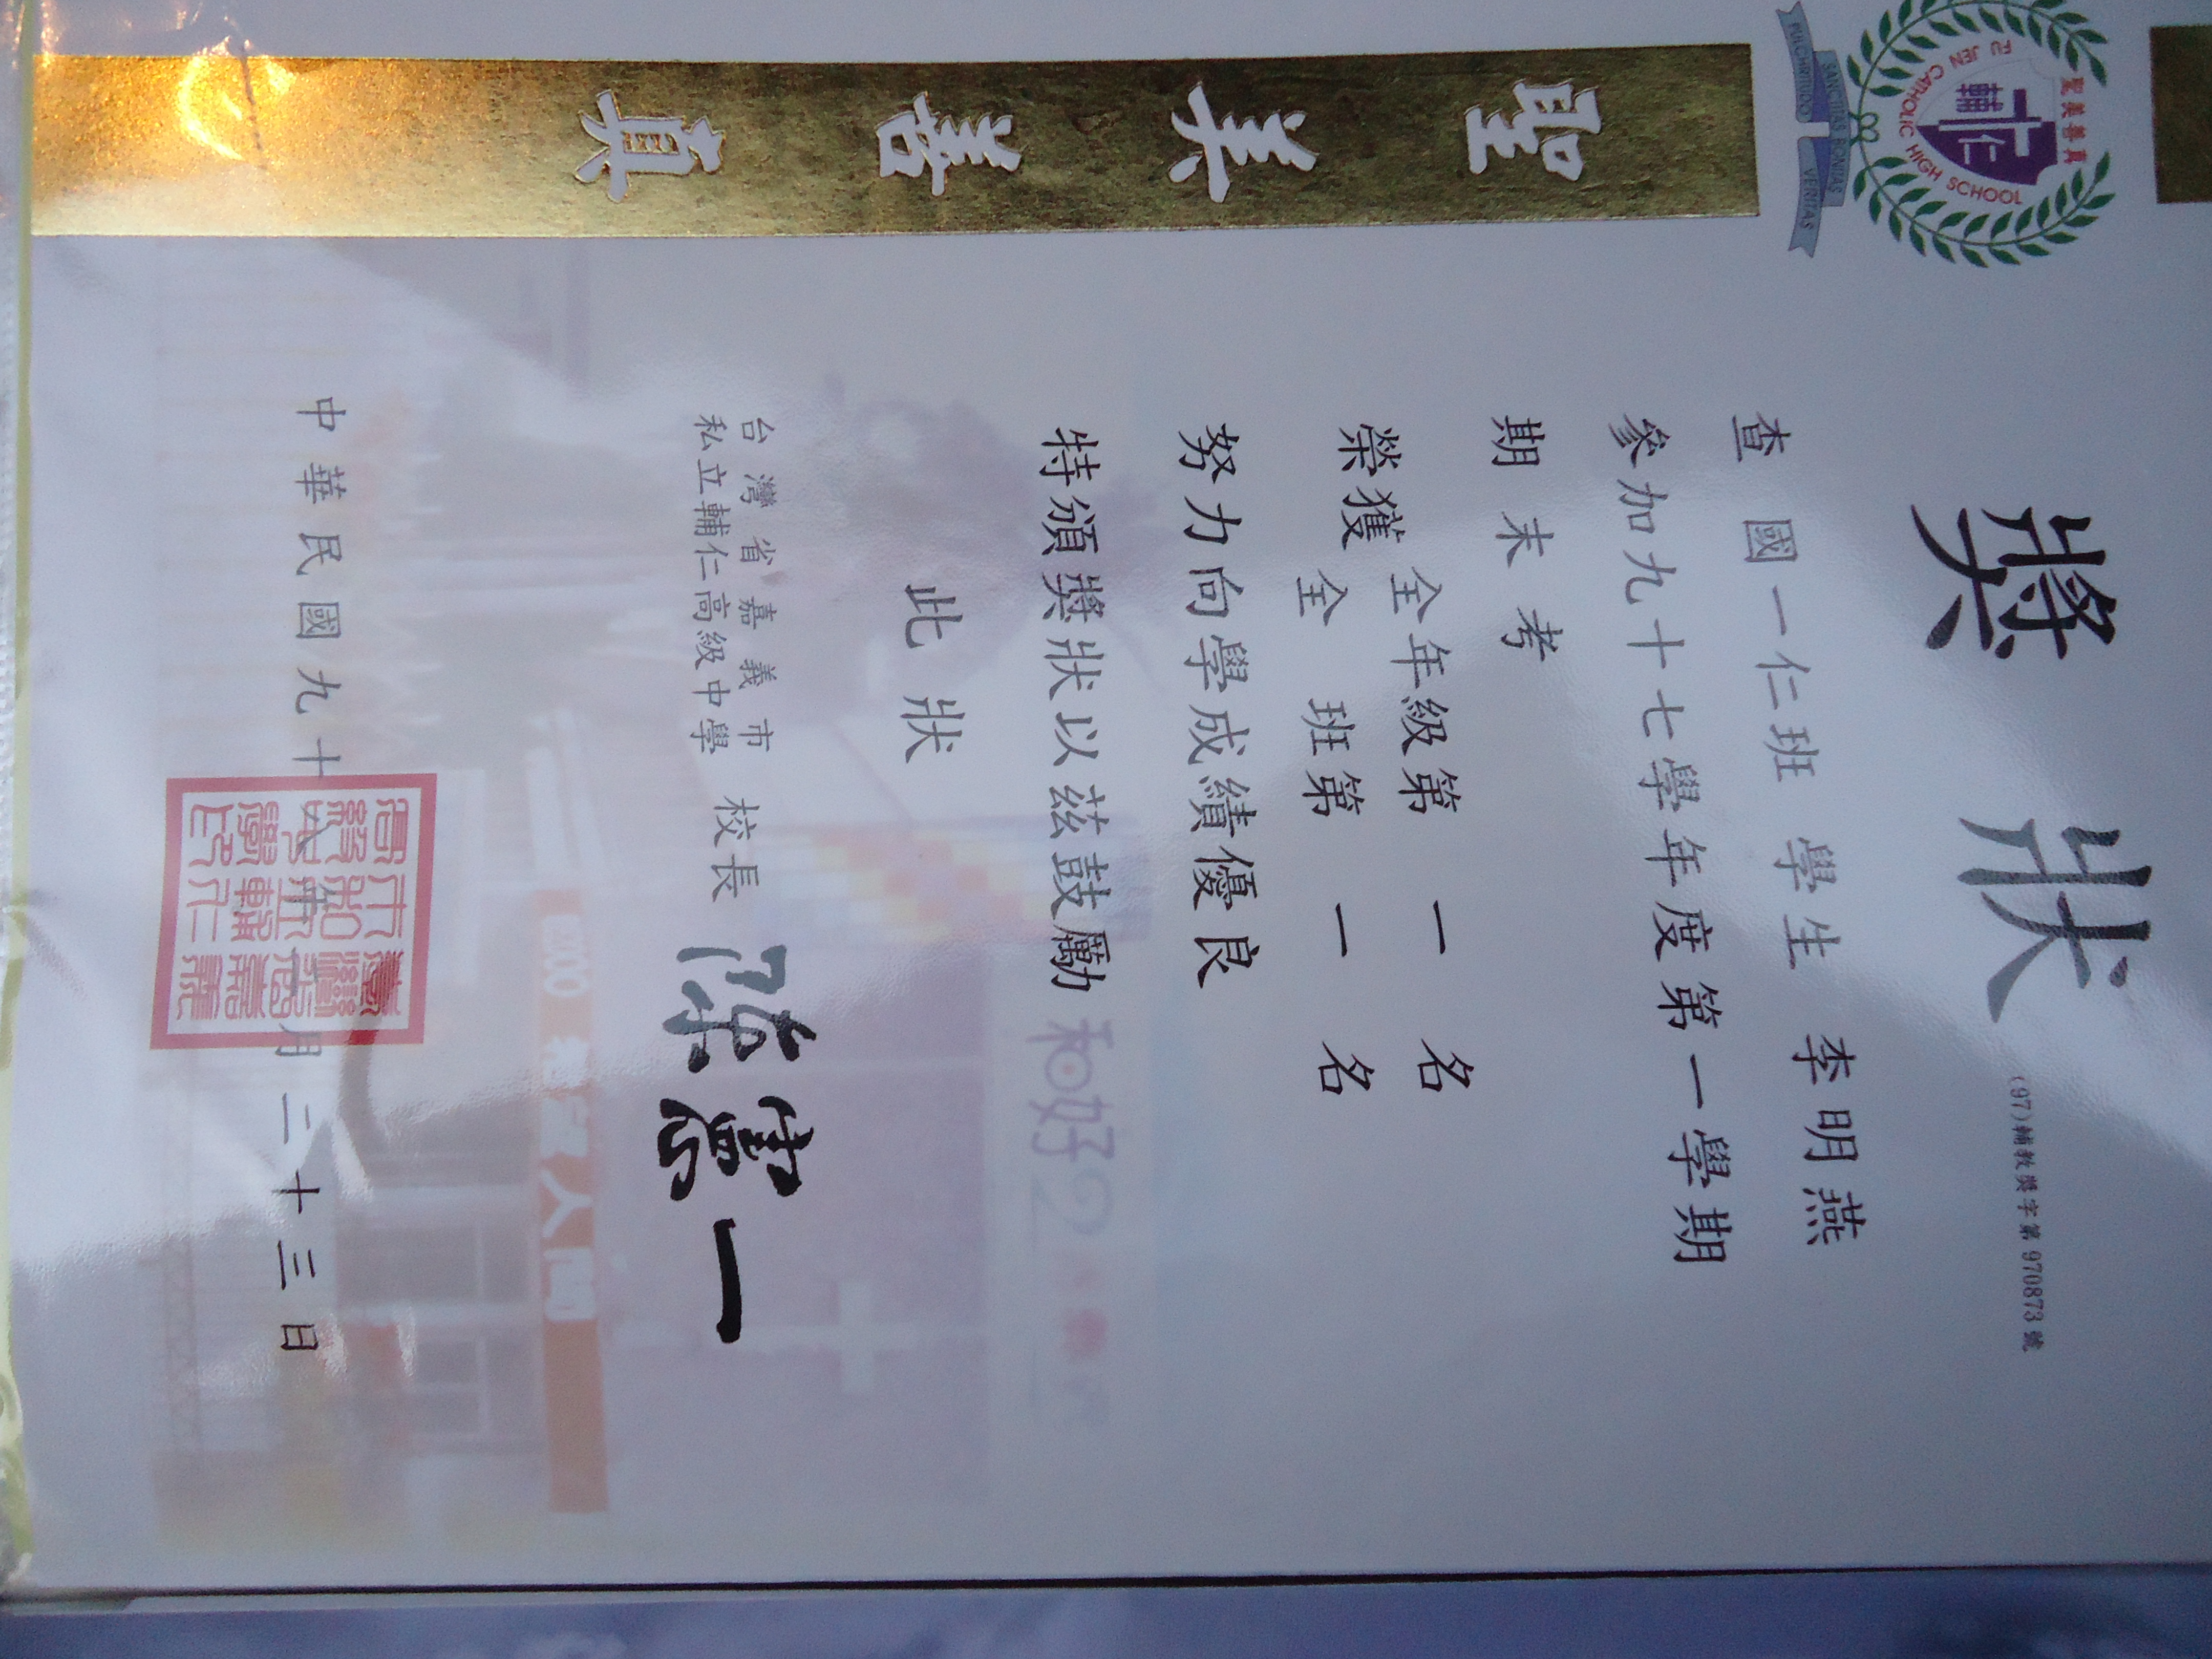 聖美善真
FU JEN CATHOLIC HIGH SCHOOL
輔仁
PULCHRITUDO SANCTITAS BONITAS VERITAS
聖美善真
獎狀
(97)輔教獎字第970873號
查國一仁班 學生 李明燕
參加九十七學年度第一學期
期末考
榮獲 全年級第 一 名
全班第 一 名
努力向學成績優良
特頒獎狀以茲鼓勵
此狀
台灣省嘉義市
私立輔仁高級中學 校長
中華民國九十 月二十三日
和好